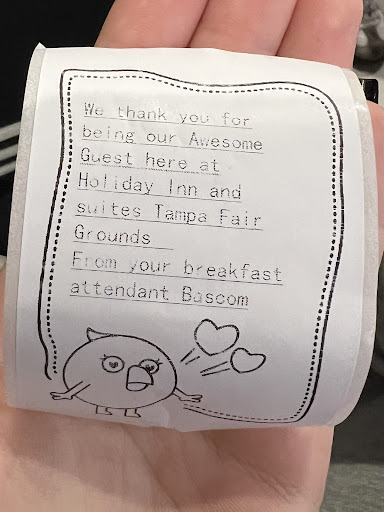 We thank you for
being our Awesome
Guest here at
Holiday Inn and
suites Tampa Fair
Grounds
From your breakfast
attendant Bascom